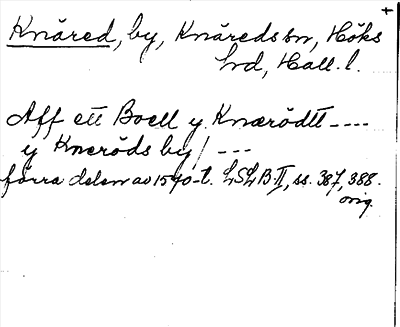 +
Knäred, by, Knäreds sn, Höks
hd, Hall. l.
Aff ett Boell y Knærödtt ----
y Kneröds by / ---
förra delen av 1540-t. LSLB. II, ss. 387, 388.
orig.